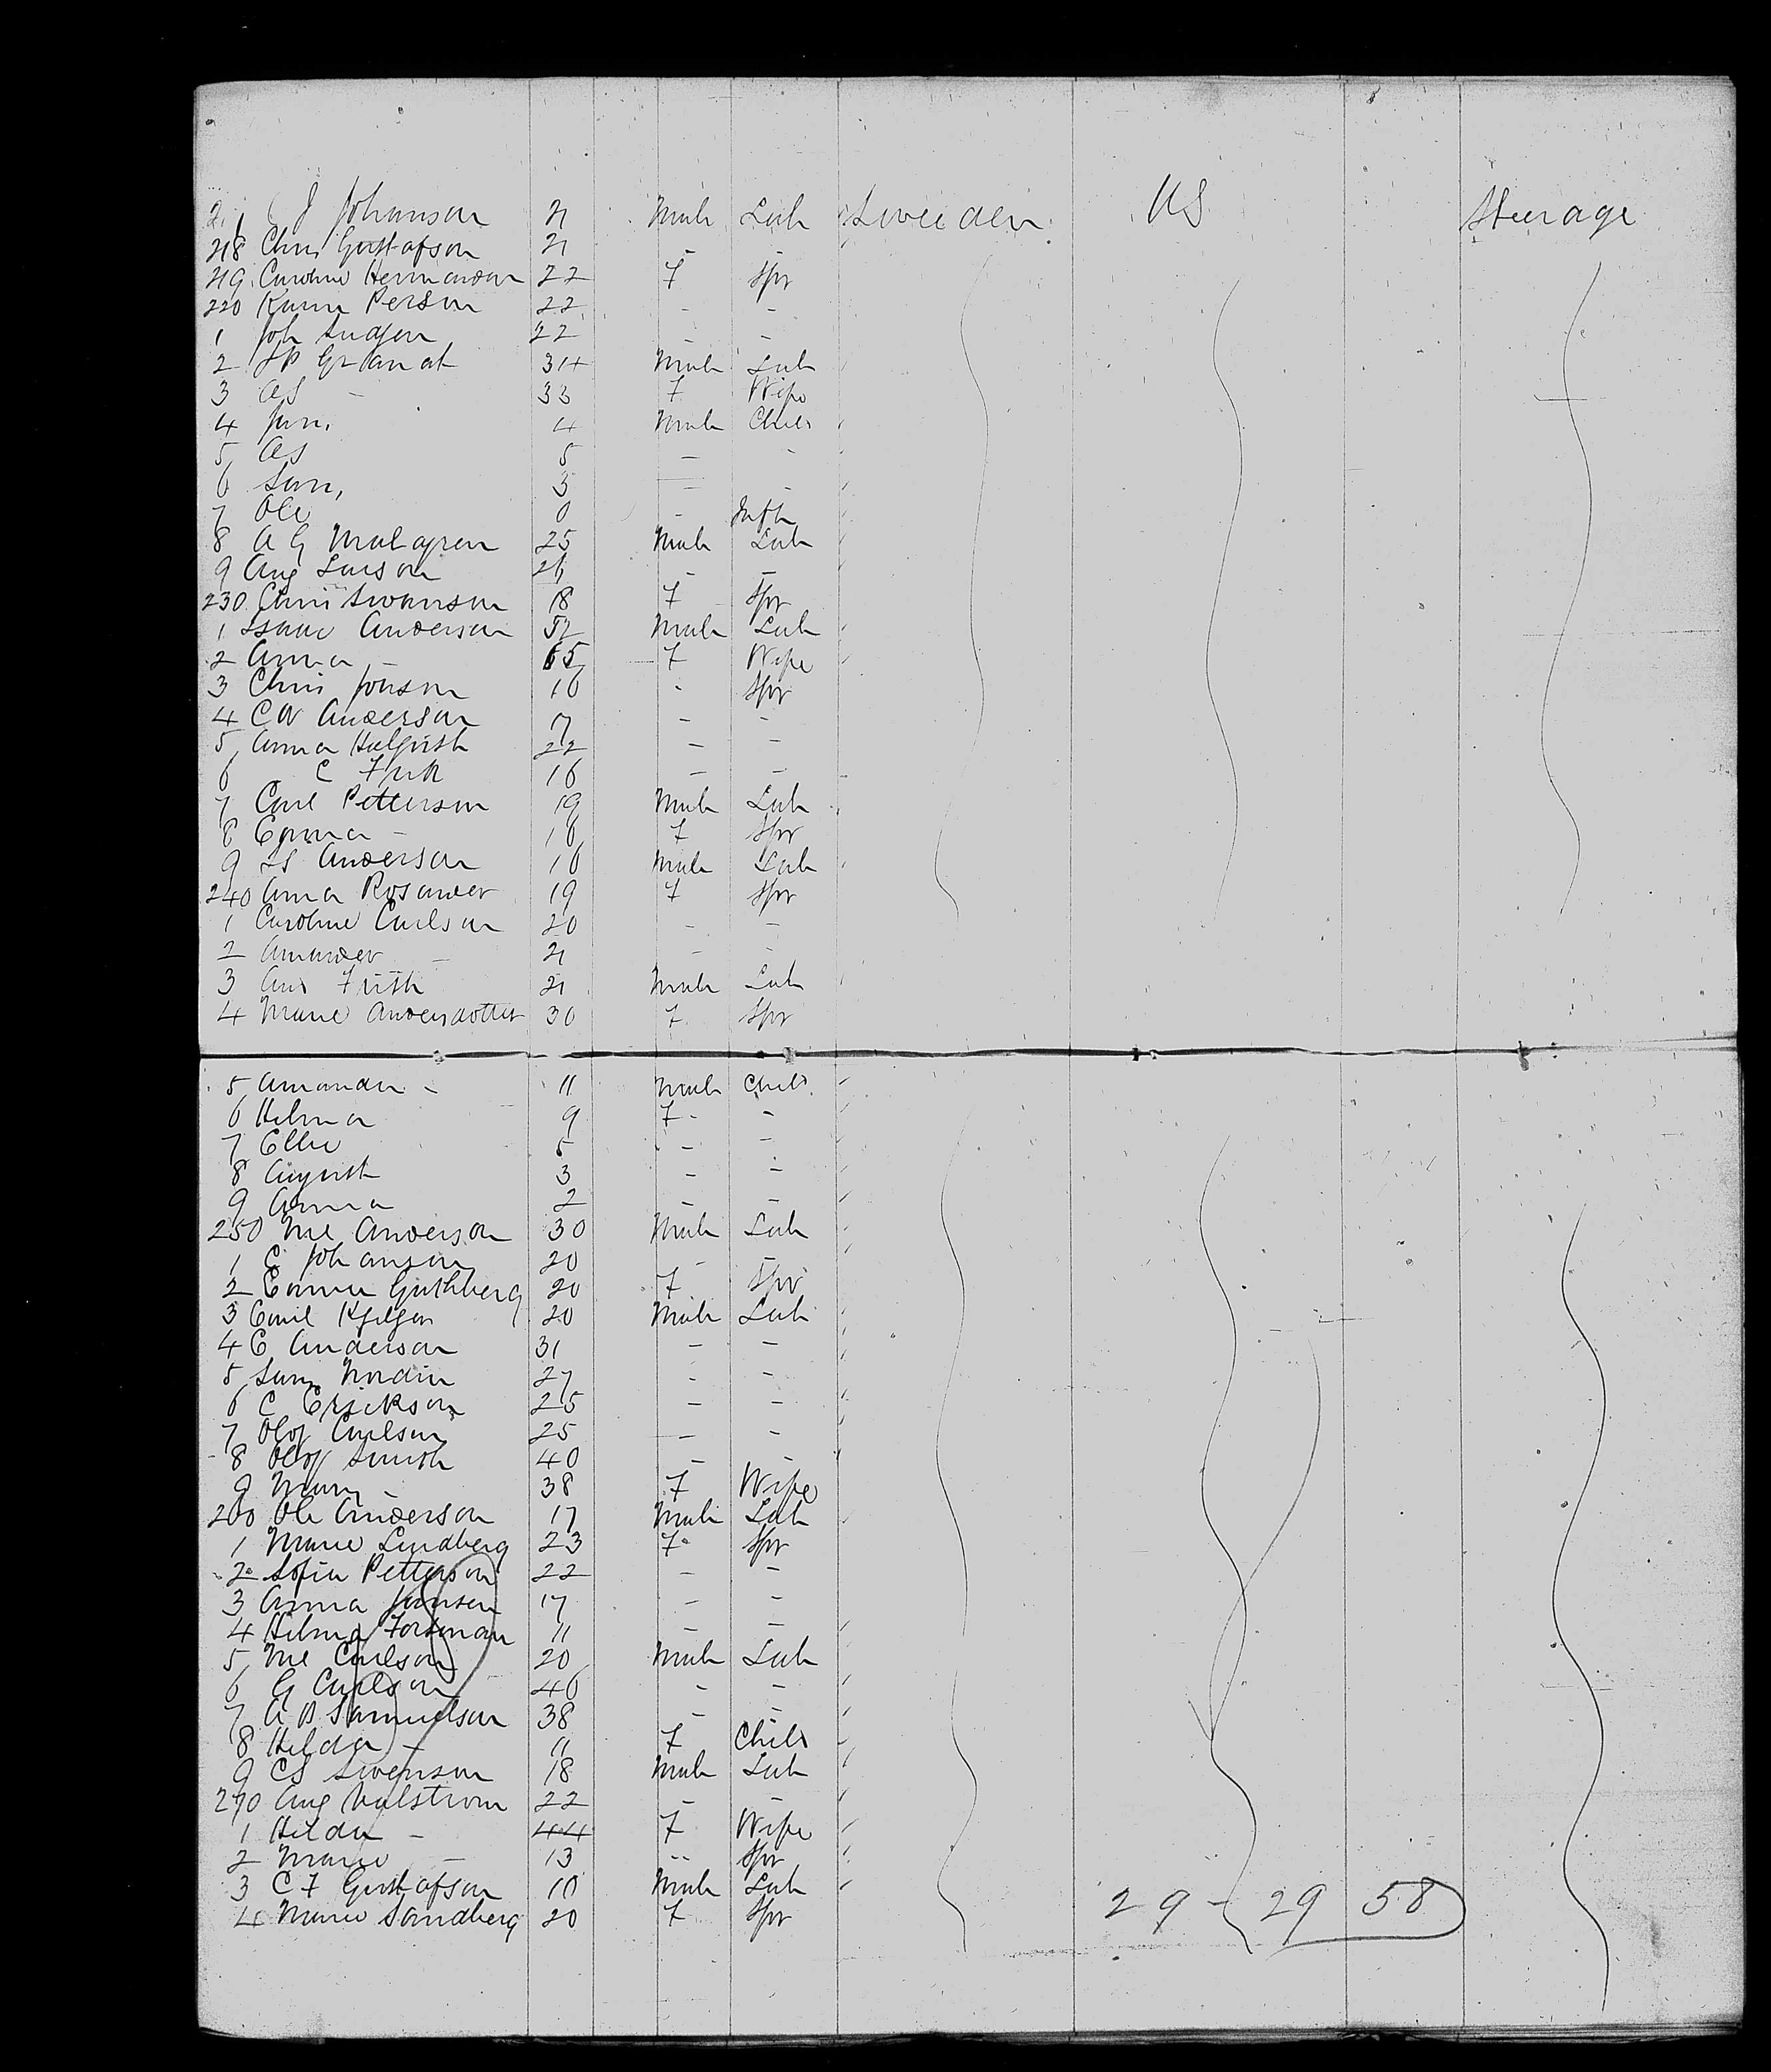 J Johanson 21 Male Lab Sweden US Steerage
218 Chris Gustafson 21 - -
219 Caroline Hermanson 22 F Spr
220 Karin Person 22 - -
1 Joh 22 - -
2 Granat 34 Male Lab
3 AS - 33 F Wife
4 4 Male Child
5 AS 5 - -
6 3 - -
7 Ole 0 - Inft
8 A G Malmgren 25 Male Lab
9 Aug Larson 21 - -
230 Chris Swanson 18 F Spr
1 Isaac Anderson 52 Male Lab
2 Anna - 65 F Wife
3 Chris Jonson 16 - Spr
4 CW Anderson 17 - -
5 Anna 22 - -
6 C 16 - -
7 Carl Petterson 19 Male Lab
8 Emma - 18 F Spr
9 LS Anderson 16 Male Lab
240 Anna Rosander 19 F Spr
1 Caroline Carlson 20 - -
2 Amander - 21 - -
3 And 21 Male Lab
4 Marie Andersdotter 30 F Spr
5 Amanda - 11 Male Child
6 Hilma 9 F - -
7 Ellie 5 - -
8 August 3 - -
9 Anna 2 - -
250 Nils Anderson 30 Male Lab
1 C Johanson 20 - -
2 Emma Guthberg 20 F Spr
3 Emil 20 Male Lab
4 C Anderson 31 - -
5 Nordin 27 - -
6 C Erickson 25 - -
7 Olof Carlson 25 - -
8 Olof Smith 40 - -
9 Mary - 38 F Wife
260 Ole Anderson 17 Male Lab
1 Marie Lindberg 23 F Spr
2 Sofia Petterson 22 - -
3 Anna Jonson 17 - -
4 Hilma Forsman 11 - -
5 Nils Carlson 20 Male Lab
6 G Carlson 46 - -
7 A B Samuelson 38 - -
8 Hilda - 11 F Child
9 CS Swenson 18 Male Lab
270 Aug Walstrom 22 - -
1 Hilda - 44 F Wife
2 Marie - 13 " Spr
3 C F Gustafson 18 Male Lab
4 Marie Sandberg 20 F Spr
29 - 29 58